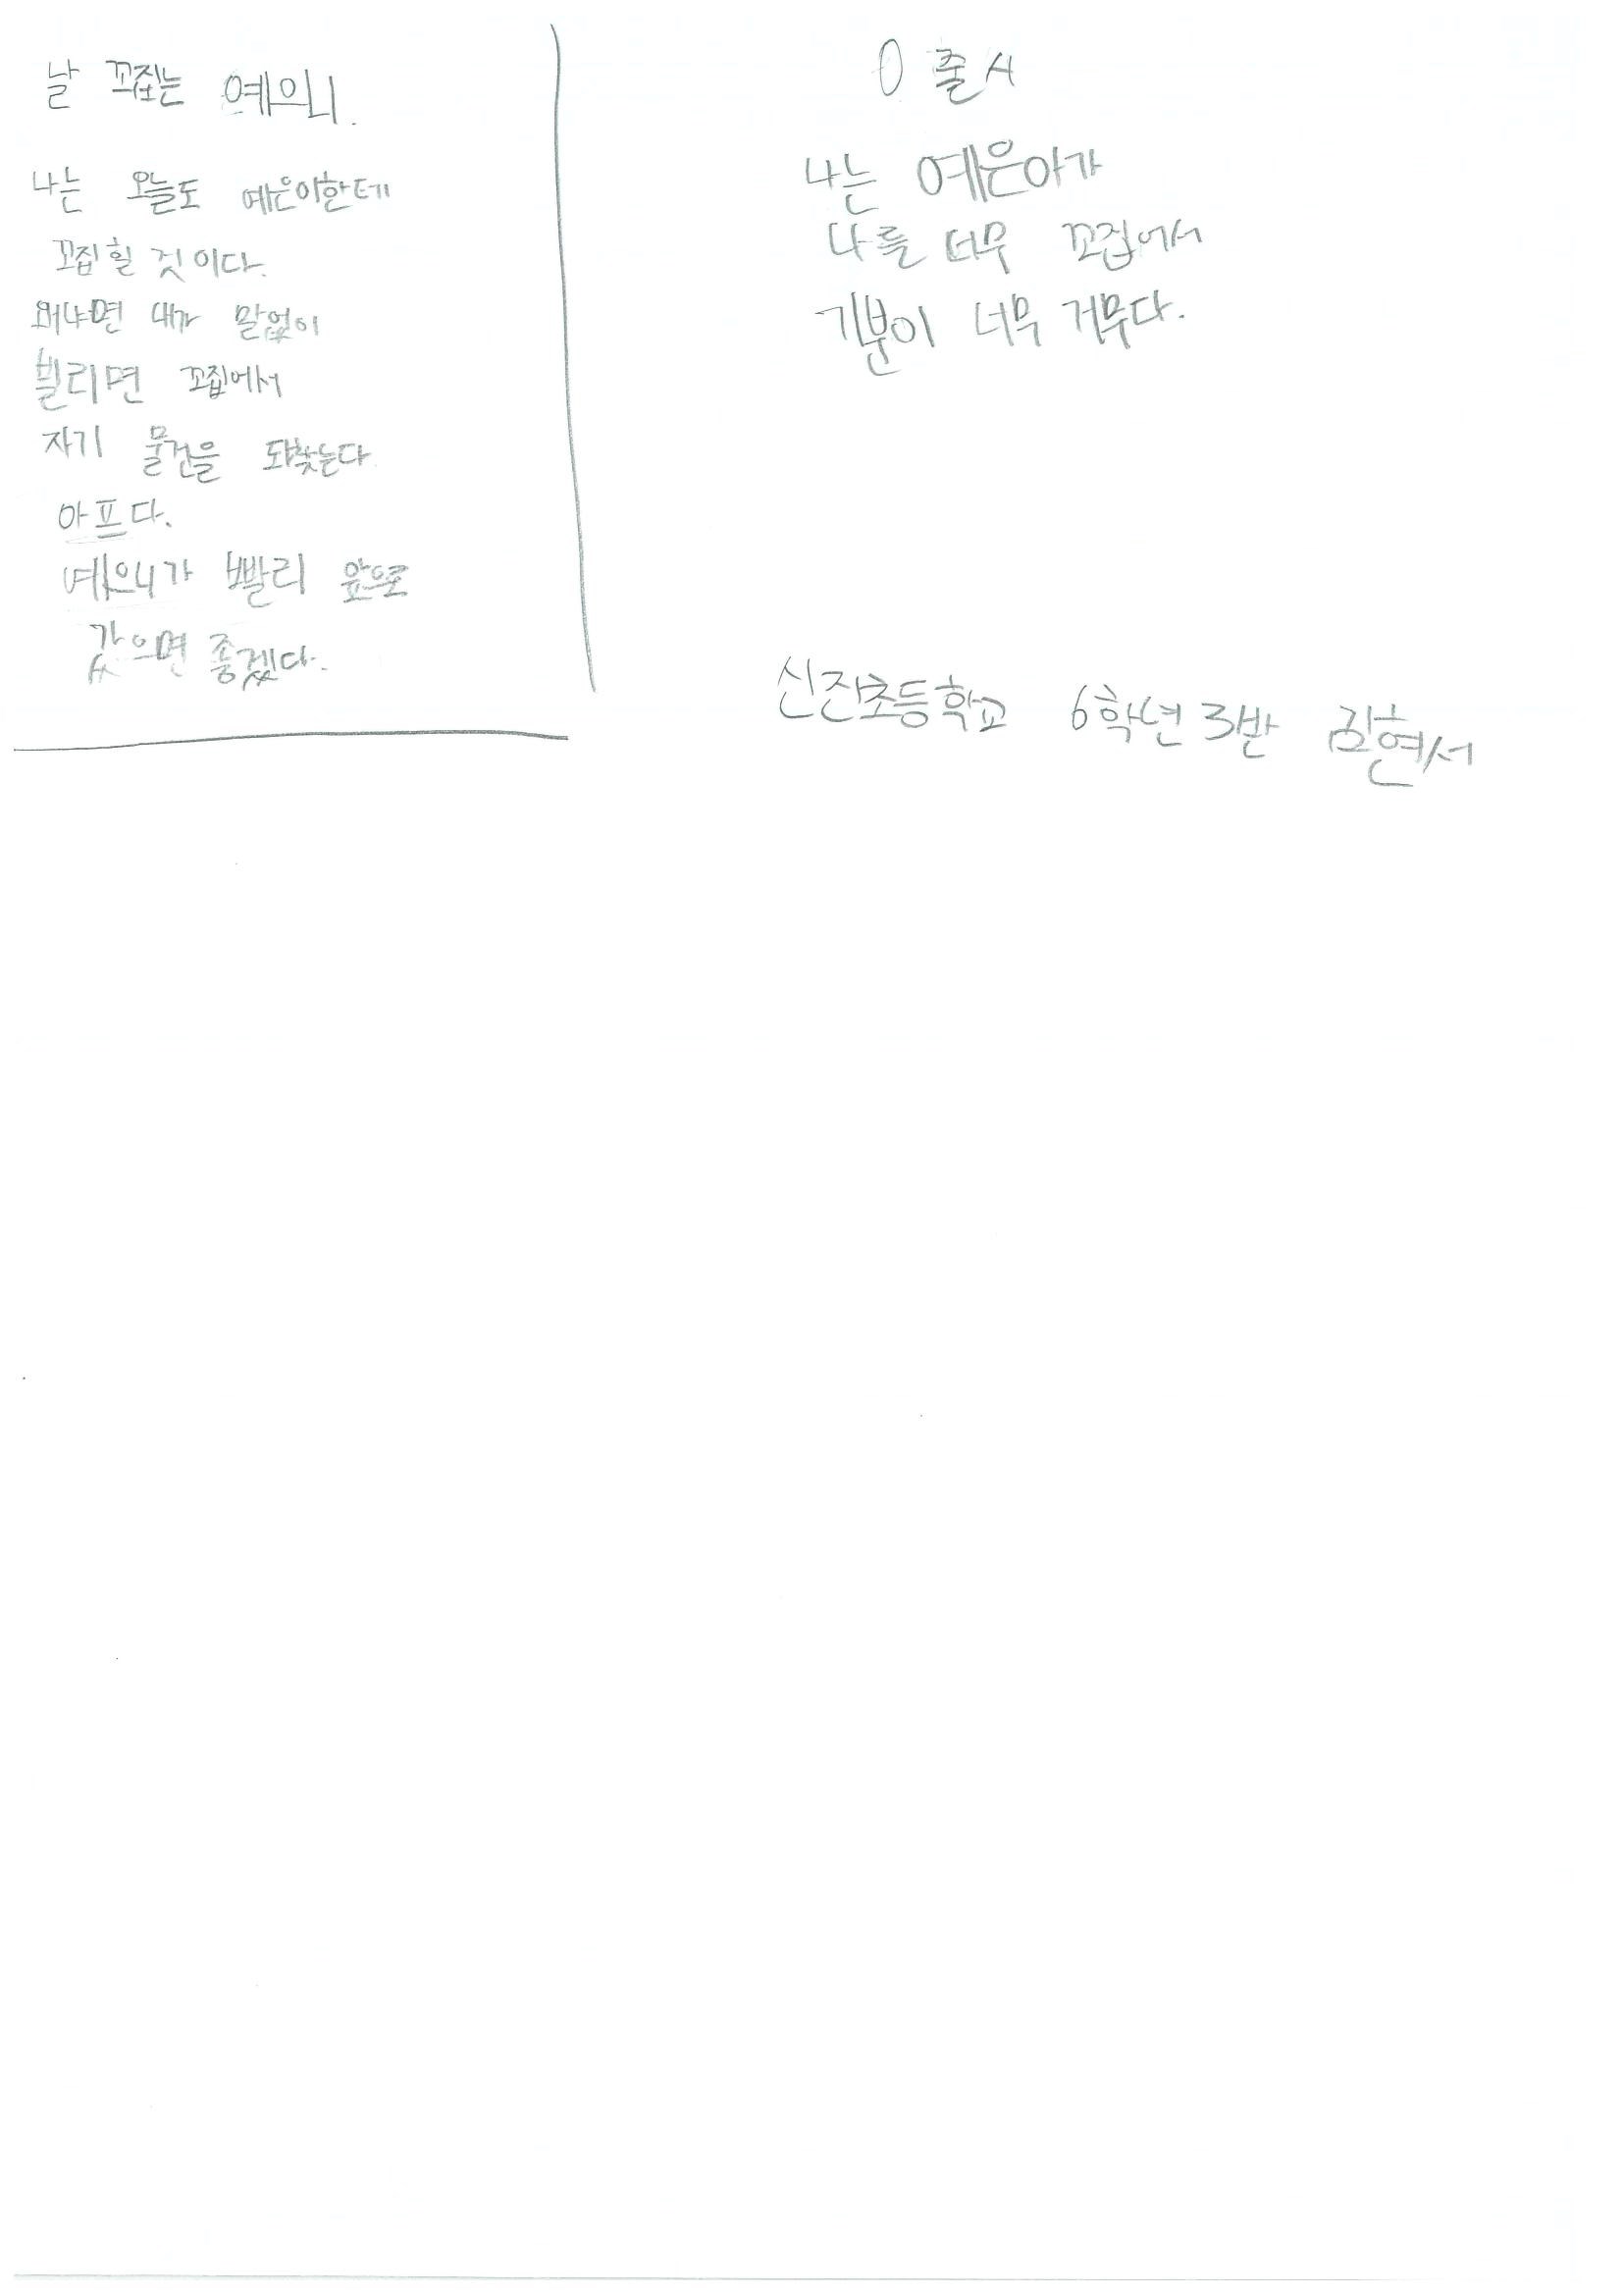 날 꼬집는 예의니.
나는 오늘도 예은이한테
꼬집힐 것이다.
왜냐면 내가 말없이
빌리면 꼬집에서
자기 물건을 되찾는다
아프다.
예의니가 빨리 앞으로
갔으면 좋겠다.
0줄시
나는 예은아가
나를 너무 꼬집에서
기분이 너무 거무다.
신진초등학교 6학년 3반 김현서